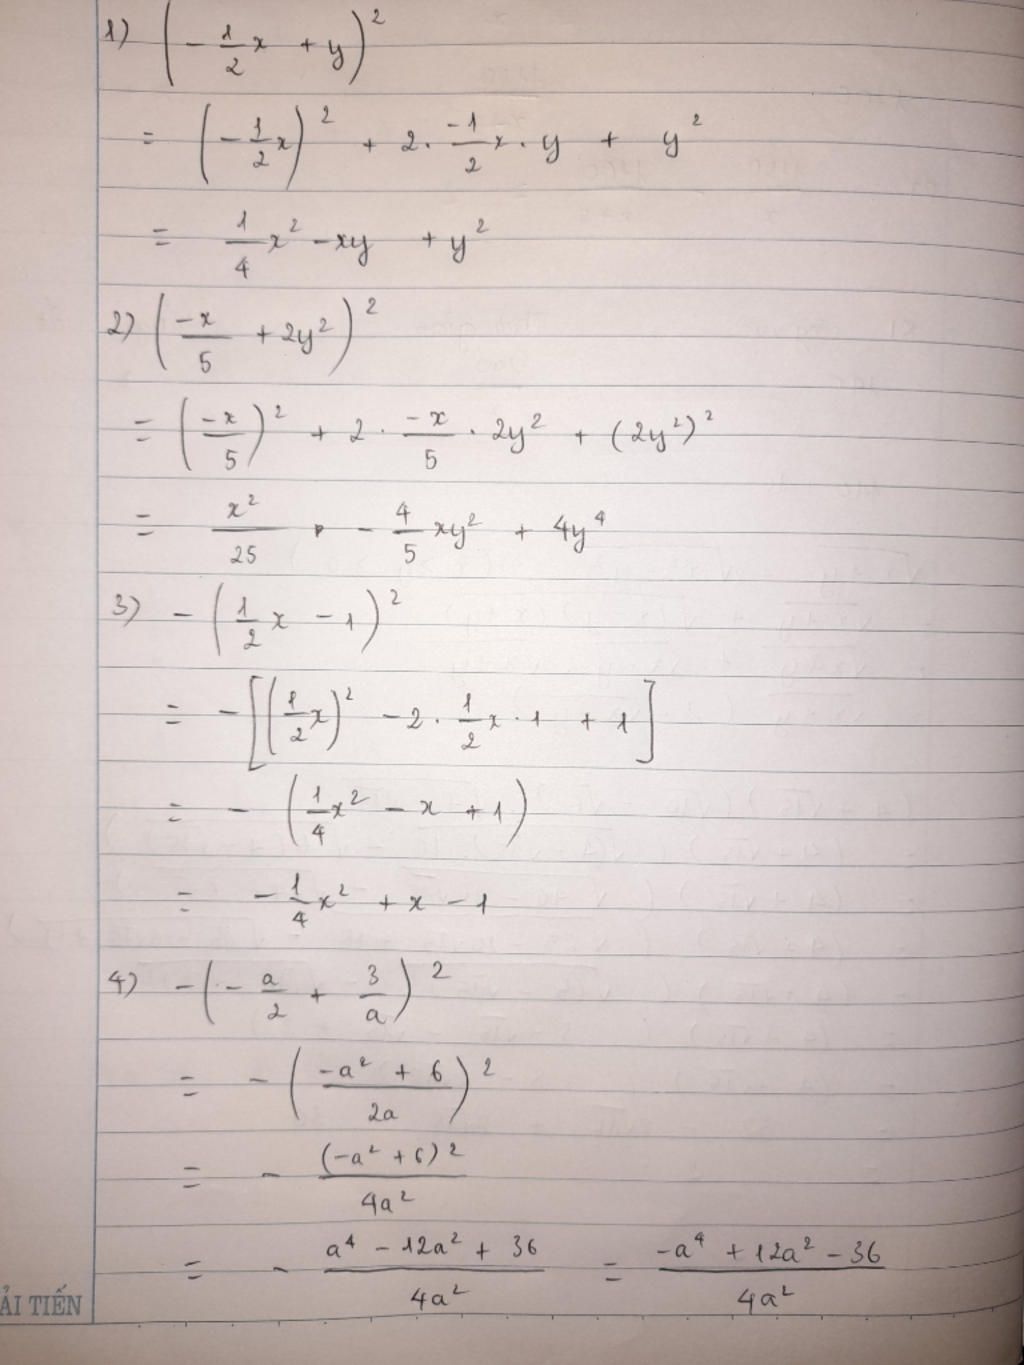 1) (-1/2 x + y)²
= (-1/2 x)² + 2 . -1/2 x . y + y²
= 1/4 x² - xy + y²
2) (-x/5 + 2y²)²
= (-x/5)² + 2 . -x/5 . 2y² + (2y²)²
= x²/25 - 4/5 xy² + 4y⁴
3) - (1/2 x - 1)²
= - [(1/2 x)² - 2 . 1/2 x . 1 + 1]
= - (1/4 x² - x + 1)
= - 1/4 x² + x - 1
4) - (- a/2 + 3/a)²
= - ((-a² + 6)/2a)²
= - (-a² + 6)²/4a²
= - (a⁴ - 12a² + 36)/4a² = (-a⁴ + 12a² - 36)/4a²
ẢI TIẾN